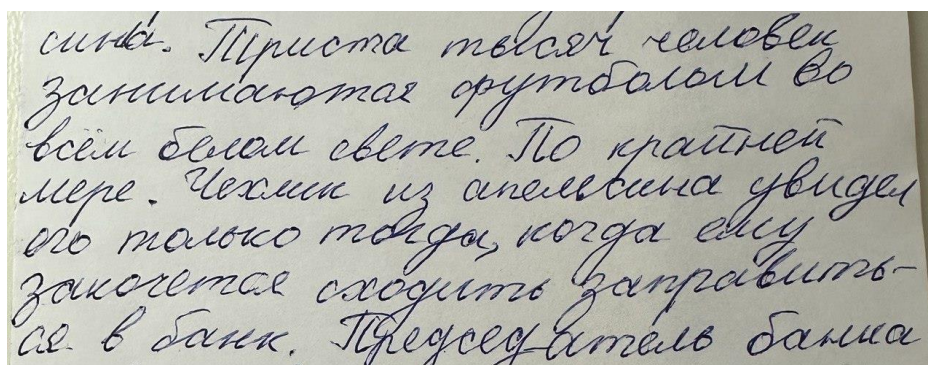 сина. Триста тысяч человек
занимаются футболом во
всём белом свете. По крайней
мере. Чехлик из апельсина увидел
его только тогда, когда ему
захочется сходить заправить-
ся в банк. Председатель банка